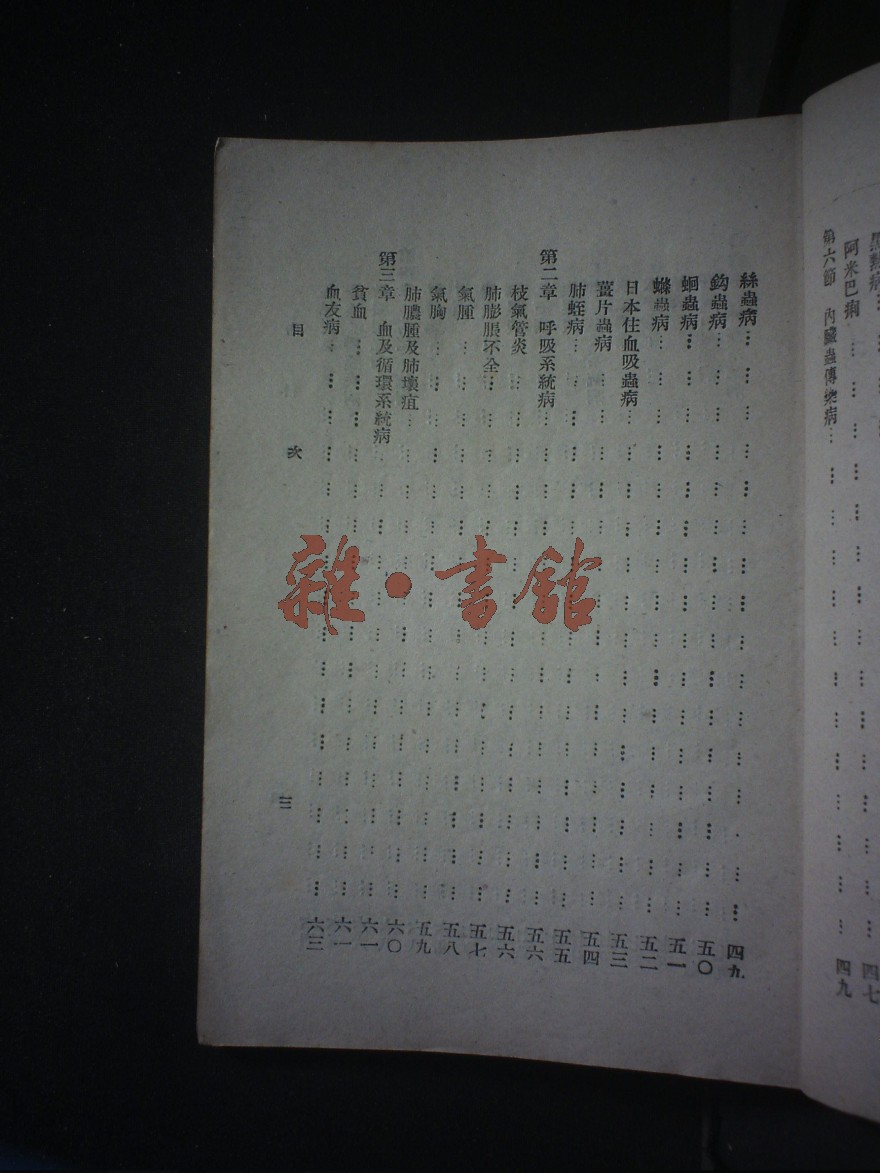 阿米巴痢 … 四七
第六節 內臟蟲傳染病 … 四九
絲蟲病 … 四九
鈎蟲病 … 五〇
蛔蟲病 … 五一
蟲病 … 五二
日本住血吸蟲病 … 五三
薑片蟲病 … 五四
肺蛭病 … 五五
第二章 呼吸系統病 … 五六
枝氣管炎 … 五六
肺膨脹不全 … 五七
氣腫 … 五八
氣胸 … 五九
肺膿腫及肺壞疽 … 六〇
第三章 血及循環系統病 … 六一
貧血 … 六一
血友病 … 六三
目 次 三
雜·書館